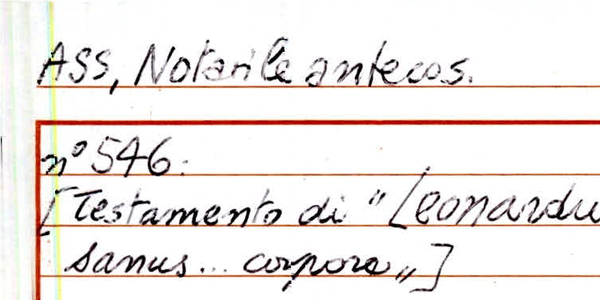 ASS, Notarile antecos.
n° 546:
[Testamento di "Leonardu
sanus... corpore"]